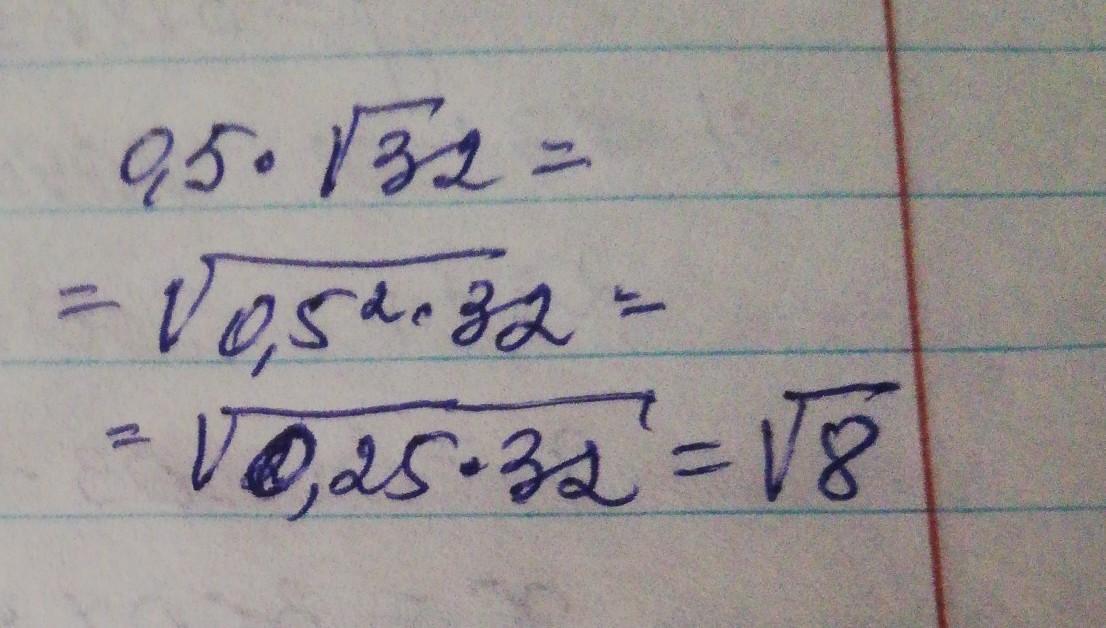 0,5 · √32 =
= √0,5² · 32 =
= √0,25 · 32 = √8